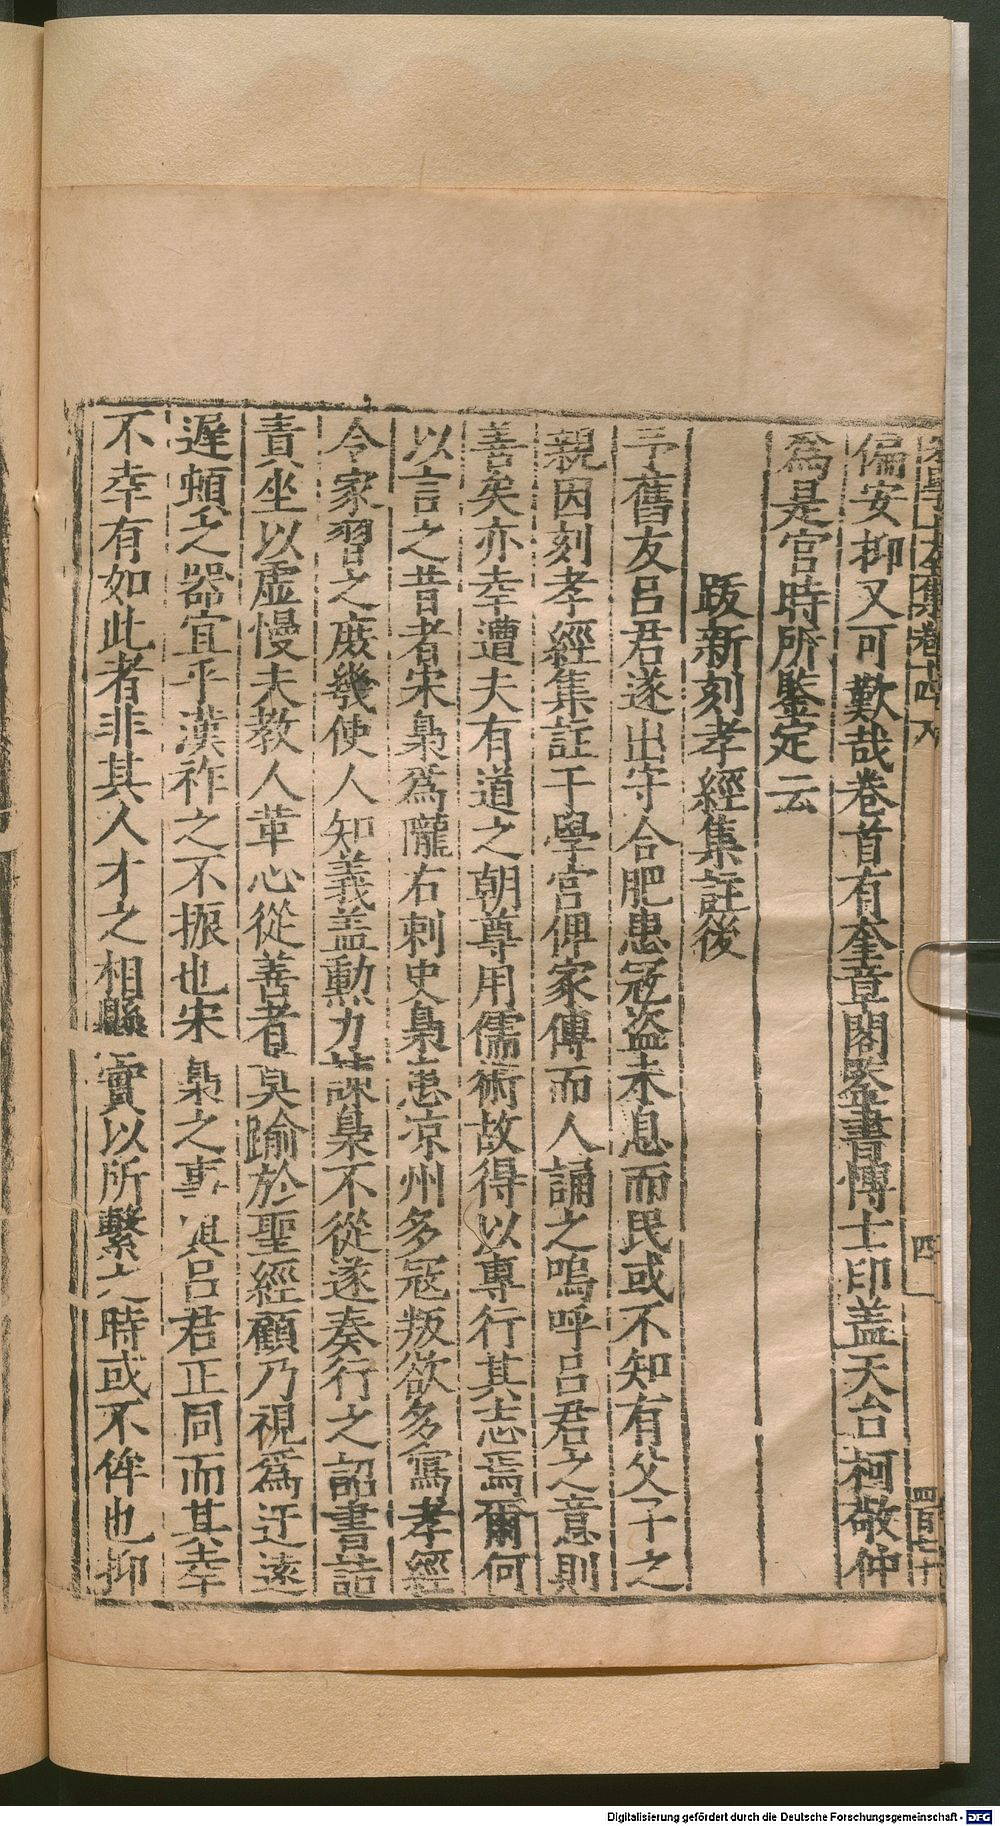 大全集卷十四
四
四百七十
偏安抑又可歎哉卷首有奎章閣鑒書博士印盖天台柯敬仲
爲是官時所鑒定云
跋新刻孝經集註後
予舊友呂君遂出守合肥患冦盗未息而民或不知有父子之
親因刻孝經集註于學宮俾家傳而人誦之嗚呼呂君之意則
善矣亦幸遭夫有道之朝尊用儒術故得以專行其志焉爾何
以言之昔者宋梟爲隴右刺史梟患凉州多冦叛欲多寫孝經
令家習之庶幾使人知義盖勳力諫梟不從遂奏行之詔書詰
責坐以虛慢夫教人革心從善者莫踰於聖經顧乃視爲迂遠
遲頓之器宜乎漢祚之不振也宋梟之事與呂君正同而其幸
不幸有如此者非其人才之相縣實以所繫之時或不侔也抑
Digitalisierung gefördert durch die Deutsche Forschungsgemeinschaft - DFG